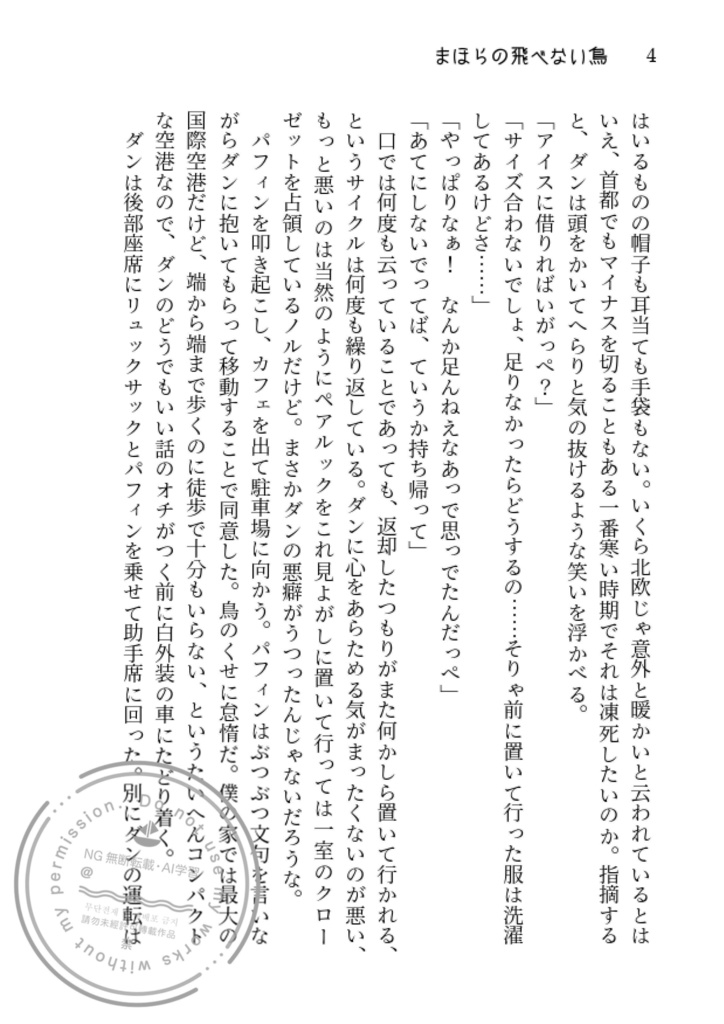 まほらの飛べない鳥 4
はいるものの帽子も耳当ても手袋もない。いくら北欧じゃ意外と暖かいと云われているとは
いえ、首都でもマイナスを切ることもある一番寒い時期でそれは凍死したいのか。指摘する
と、ダンは頭をかいてへらりと気の抜けるような笑いを浮かべる。
「アイスに借りればいがっぺ？」
「サイズ合わないでしょ、足りなかったらどうするの……そりゃ前に置いて行った服は洗濯
してあるけどさ……」
「やっぱりなぁ！　なんか足んねえなあっで思っでたんだっぺ」
「あてにしないでってば、ていうか持ち帰って」
口では何度も云っていることであっても、返却したつもりがまた何かしら置いて行かれる、
というサイクルは何度も繰り返している。ダンに心をあらためる気がまったくないのが悪い、
もっと悪いのは当然のようにペアルックをこれ見よがしに置いて行っては一室のクロー
ゼットを占領しているノルだけど。まさかダンの悪癖がうつったんじゃないだろうな。
パフィンを叩き起こし、カフェを出て駐車場に向かう。パフィンはぶつぶつ文句を言いな
がらダンに抱いてもらって移動することで同意した。鳥のくせに怠惰だ。僕の家では最大の
国際空港だけど、端から端まで歩くのに徒歩で十分もいらない、というたいへんコンパクト
な空港なので、ダンのどうでもいい話のオチがつく前に白外装の車にたどり着く。
ダンは後部座席にリュックサックとパフィンを乗せて助手席に回った。別にダンの運転は
Do not use my works without my permission.
NG 無断転載・AI学習
@
무단전재 금지
請勿未經許可轉載作品
禁